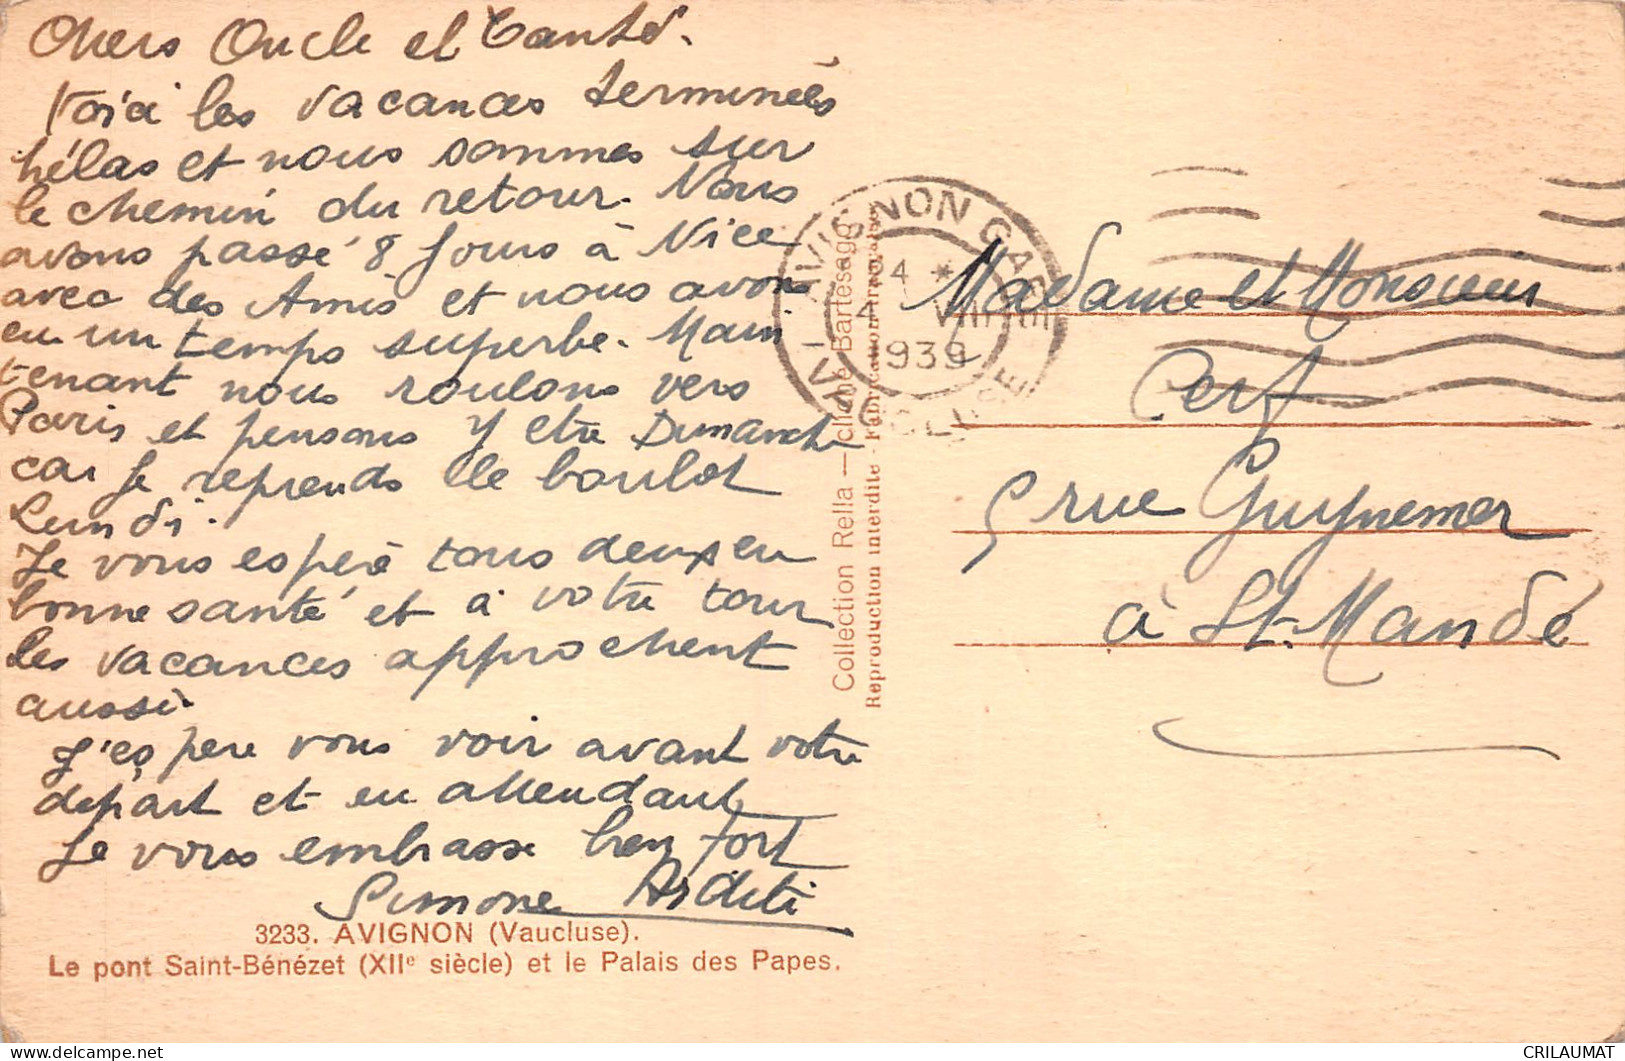 Chers Oncle et Tante.
Voici les vacances terminées
hélas et nous sommes sur
le chemin du retour. Nous
avons passé 8 jours à Nice
avec des Amis et nous avons
eu un temps superbe. Main
tenant nous roulons vers
Paris et pensons y être Dimanche
car je reprends le boulot
Lundi.
Je vous espère tous deux en
bonne santé et à votre tour
les vacances approchent
aussi.
J'espère vous voir avant votre
départ et en attendant
Je vous embrasse bien fort
Simone Arditi
3233. AVIGNON (Vaucluse).
Le pont Saint-Bénézet (XIIe siècle) et le Palais des Papes.
Collection Rella — cliché Bartesago
Reproduction interdite - Fabrication française
AVIGNON GARE
4 *
4 VIII
1939
VAUCLUSE
Madame et Monsieur
Cerf
5 rue Guynemer
à St-Mandé
CRILAUMAT